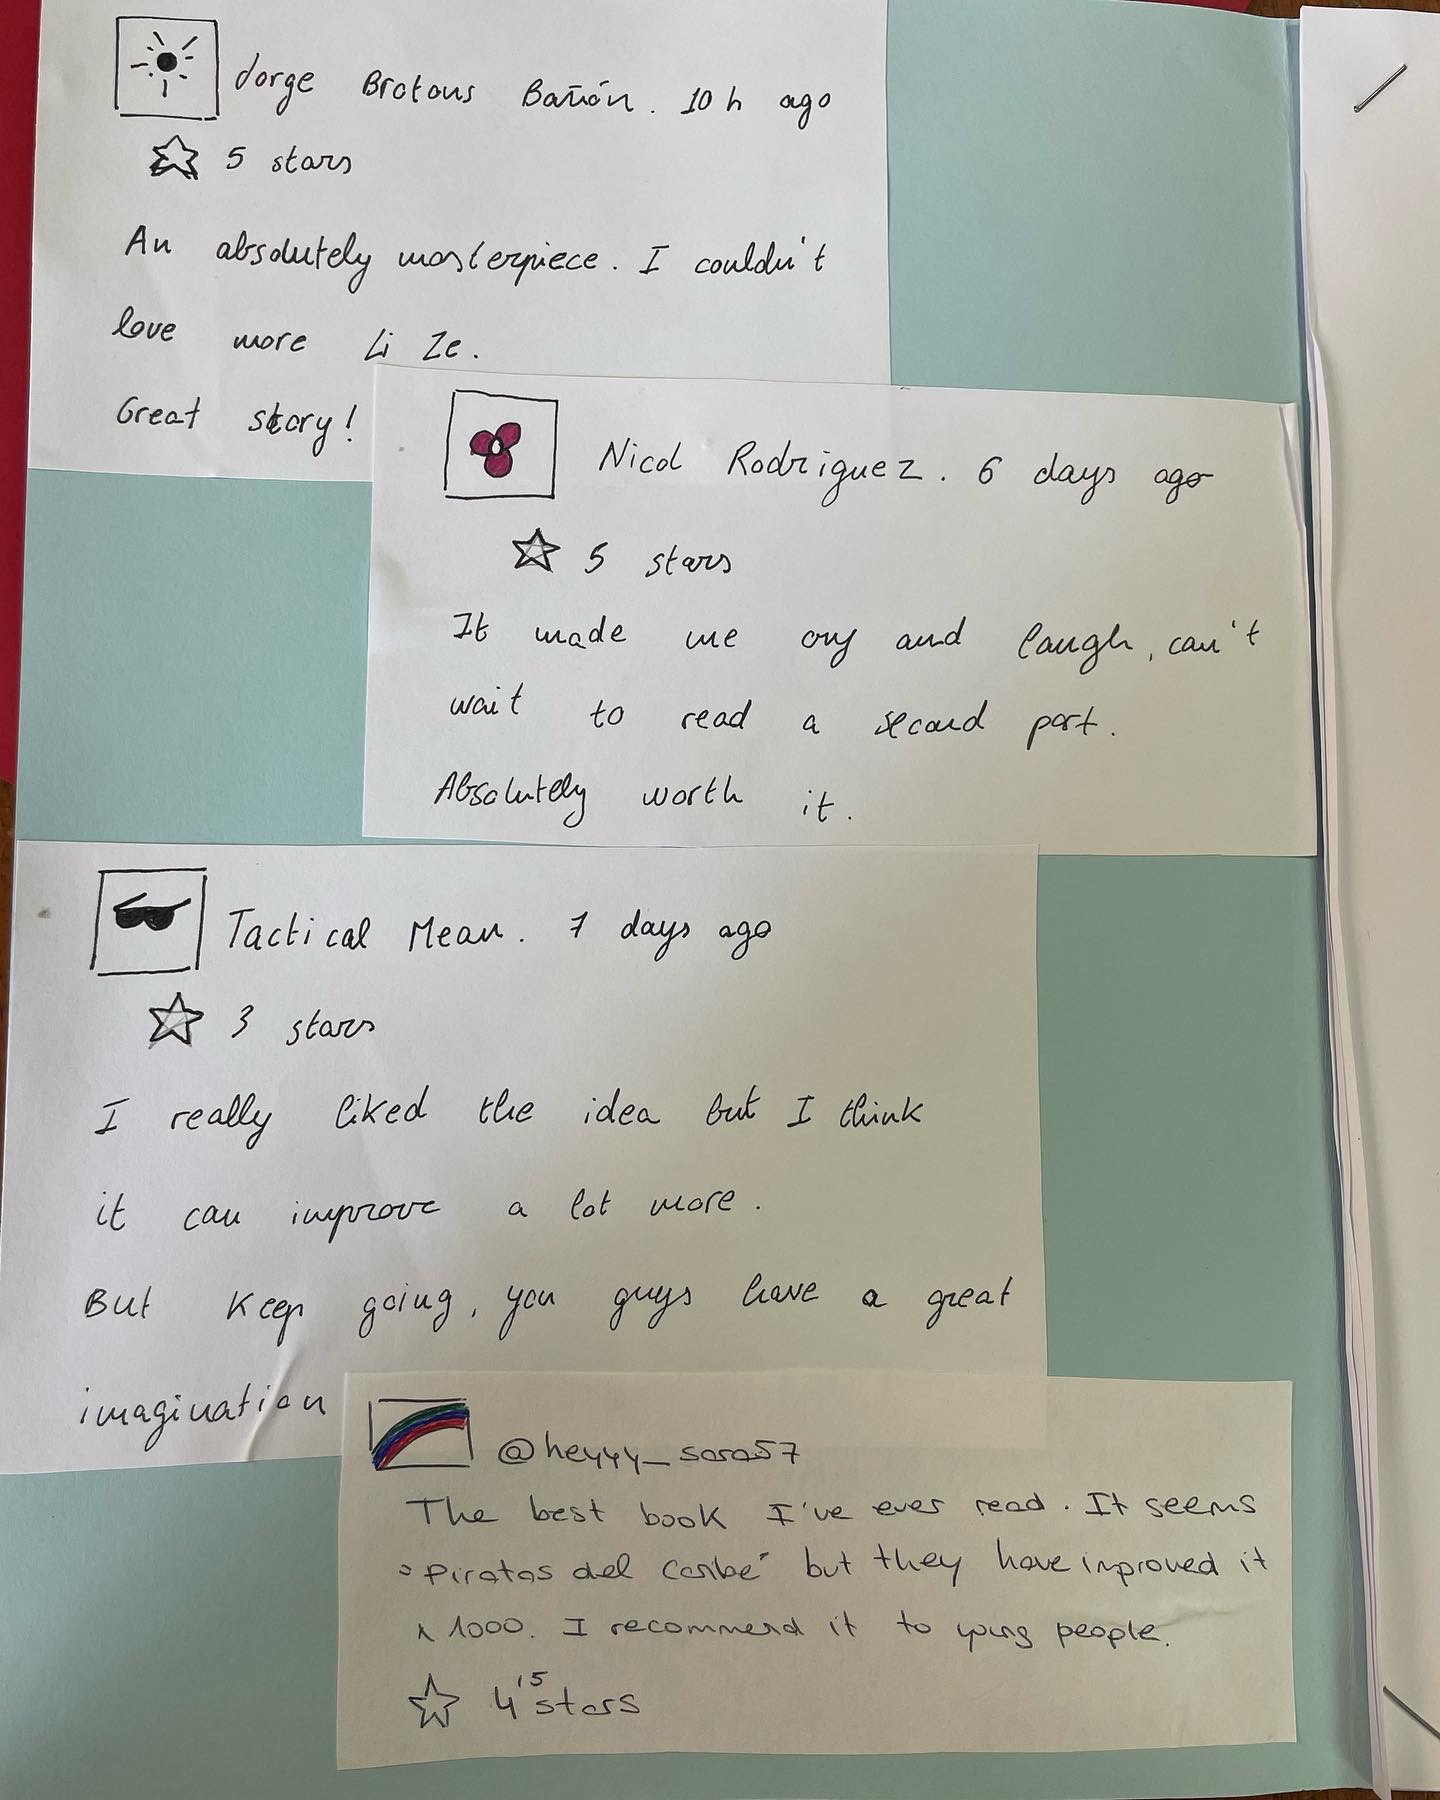 Jorge Brotons Bañón. 10 h ago
5 stars
An absolutely masterpiece. I couldn't
love more Li Ze.
Great story!
Nicol Rodriguez. 6 days ago
5 stars
It made me cry and laugh, can't
wait to read a second part.
Absolutely worth it.
Tactical Mean. 7 days ago
3 stars
I really liked the idea but I think
it can improve a lot more.
But keep going, you guys have a great
imagination
@heyyy_sara57
The best book I've ever read. It seems
"Piratas del Caribe" but they have improved it
x 1000. I recommend it to young people.
4'5 stars